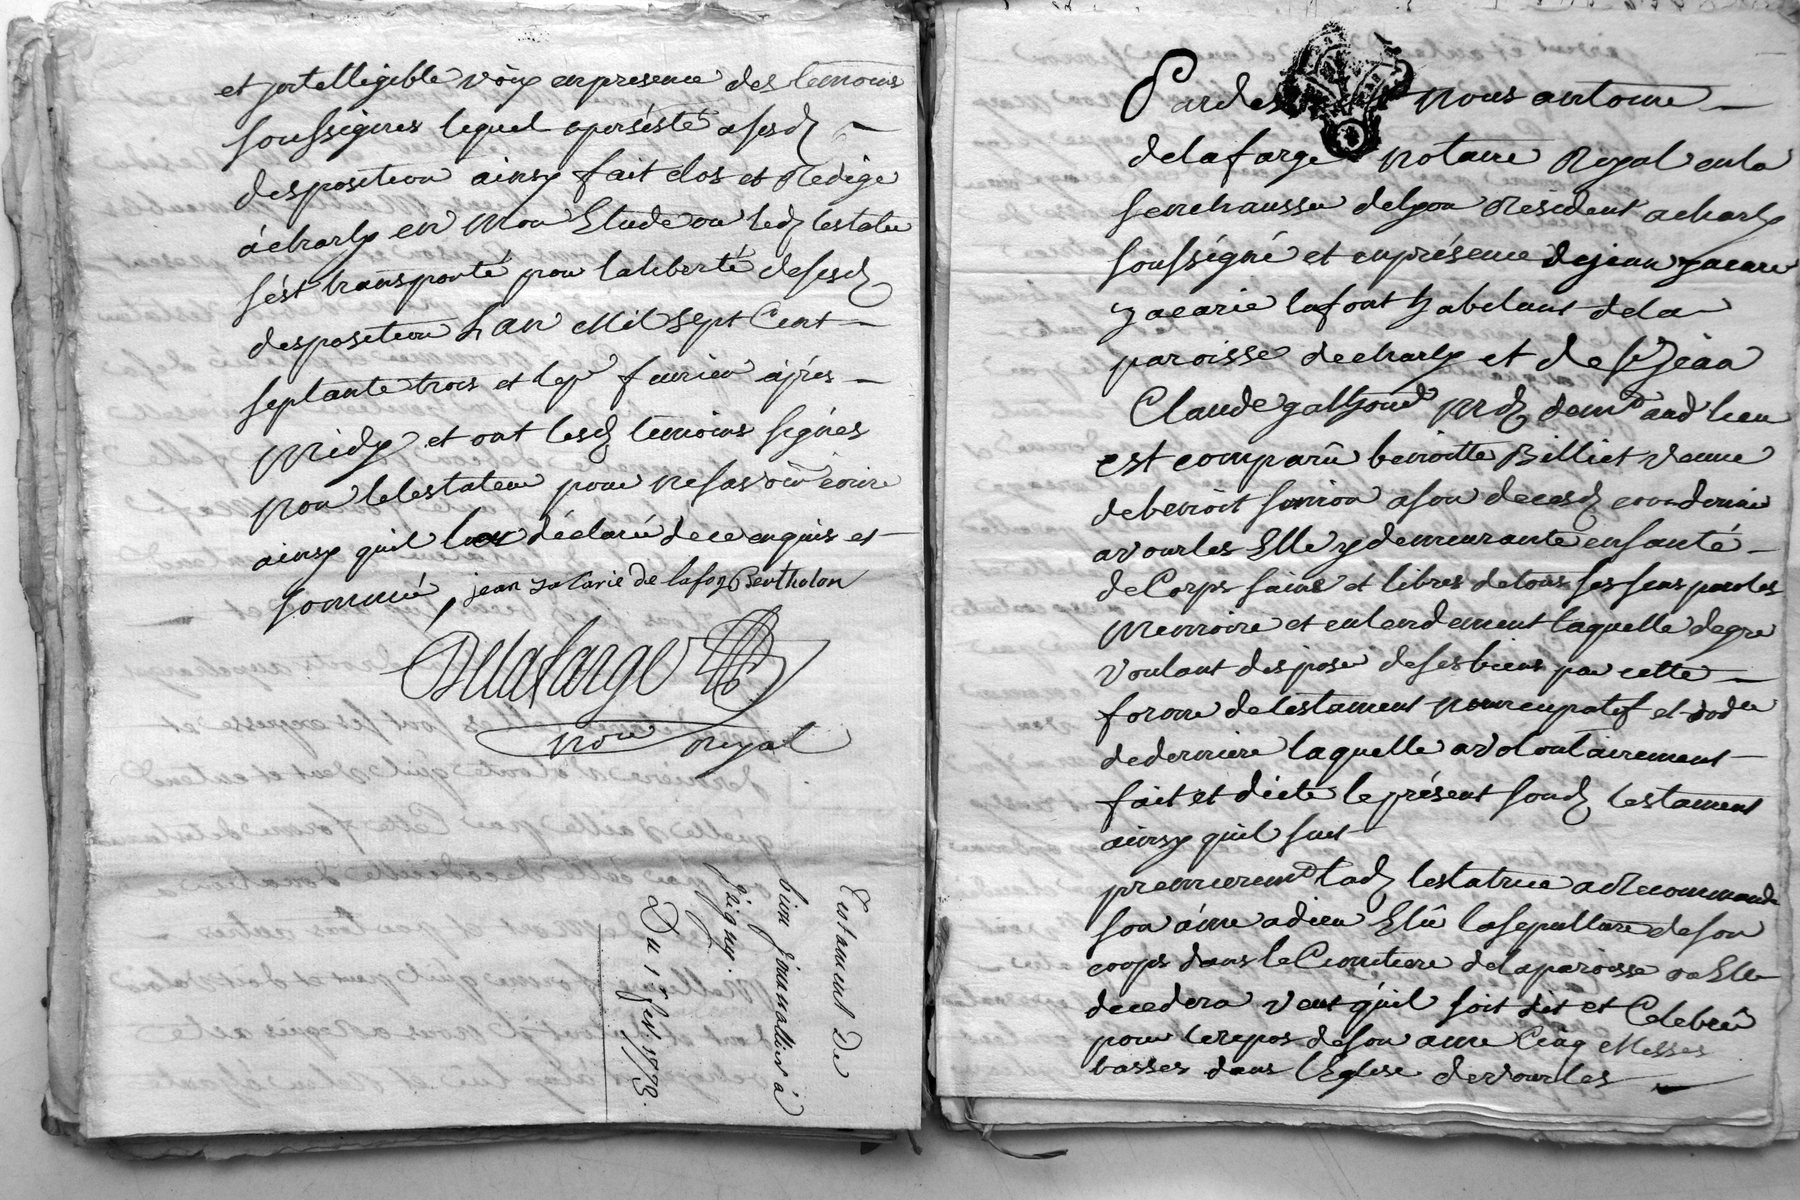 et jntelligible voix en presence des temoins
soussignes lequel a persisté a sesd
disposition ainsy fait clos et Redigé
à charly en mon Etude ou led testateur
s'est transporté pour la liberté de sesd
disposition L'an Mil sept Cent
septante trois et le p.er fevrier après
Midy et ont lesd temoins signés
non le testateur pour ne savoir écrire
ainsy quil la déclaré de ce enquis et
sommé, jean zacarie de lafon Bertholon
Delafarge
no.re Royal
Testament de
à
Grigny.
Du 1.er fev. 1773.
Pardes nous antoine
delafarge notaire Royal en la
senechaussée de lyon Résident a charly
soussigné et en présence de jean zacarie
zacarie lafont habitant de la
paroisse de charly et de s.r jean
Claude md dem.t aud lieu
est comparû benoitte Billiet veuve
de benoit a son décès
a vourles Elle y demeurante en santé
de Corps saine et libres de tous ses sens paroles
Memoire et entendement laquelle de gré
voulant disposer de ses biens par cette
forme de testament nuncupatif et
de derniere laquelle a volontairement
fait et dicté le présent sond testament
ainsy quil suit
premierem.t lad testatrice a Recommandé
son âme a dieu Elû la sepulture de son
corps dans le Cimetiere de la paroisse ou Elle
decedera veut qu'il soit dit et Celebré
pour le repos de son ame Cinq Messes
basses dans l'Eglise de vourles